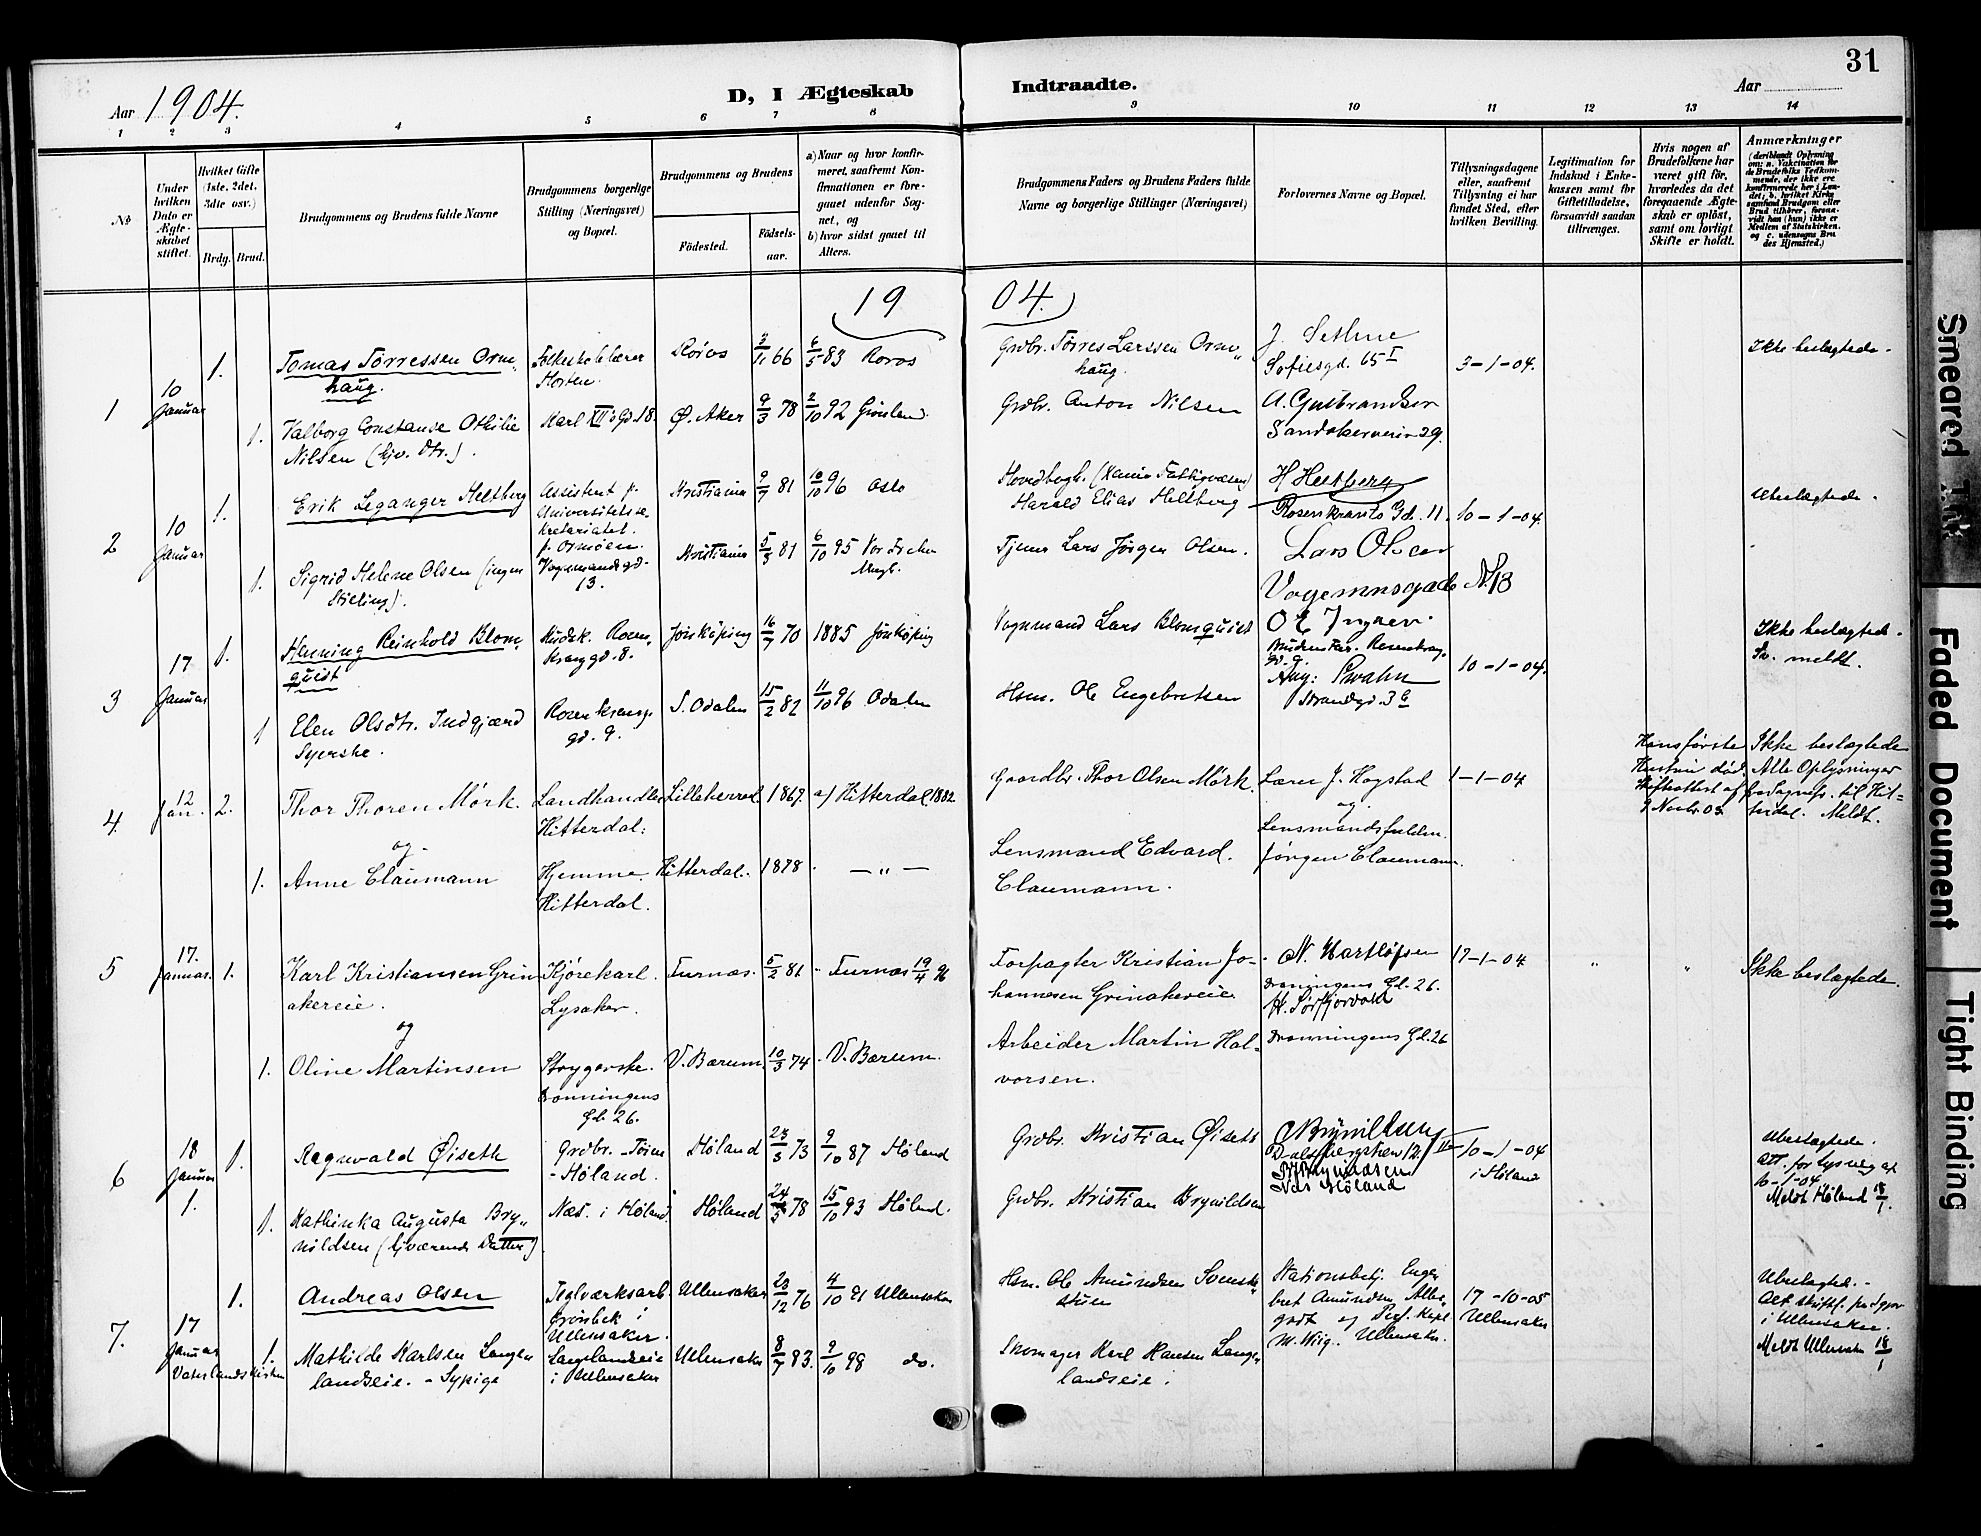 31
Aar 1904.
D, I Ægteskab
Indtraadte.
Aar
1 2 3 4 5 6 7 8 9 10 11 12 13 14
No
Under hvilken Dato er Ægteskabet stiftet.
Hvilket Gifte (1ste, 2det, 3die osv.)
Brdg. Brud.
Brudgommens og Brudens fulde Navne
Brudgommens borgerlige Stilling (Næringsvei) og Bopæl.
Brudgommens og Brudens
Fødested.
Fødselsaar.
a) Naar og hvor konfirmeret, saafremt Konfirmationen er foregaaet udenfor Sognet, og
b) hvor sidst gaaet til Alters.
Brudgommens Faders og Brudens Faders fulde Navne og borgerlige Stillinger (Næringsvei)
Forlovernes Navne og Bopæl.
Tillysningsdagene eller, saafremt Tillysning ei har fundet Sted, efter hvilken Bevilling.
Legitimation for Indskud i Enkekassen samt for Giftetilladelse, forsaavidt saadan tiltrænges.
Hvis nogen af Brudefolkene har været gift før, hvorledes da det foregaaende Ægteskab er opløst, samt om lovligt Skifte er holdt.
Anmærkninger
(deriblandt Oplysning om: a. Vakcination for de Brudefolks Vedkommende, der ikke ere konfirmerede her i Landet; b. hvilket Kirkesamfund Brudgom eller Brud tilhører, forsaavidt han (hun) ikke er Medlem af Statskirken, og c. udensogns Brudes Hjemsted.)
19
04.
1
10 Januar
1.
Tomas Torressen Ormhaug.
Folkeskolelærer Horten.
Röros
3/11 66
6/5 83 Roros
Grdbr. Torres Larssen Ormhaug.
J. Sethne
Sofiesgd. 65 I
3-1-04.
Ikke beslægtede.
1.
Valborg Constanse Othilie Nilsen (hjv. Dtr.).
Karl XII's Gd. 18.
Ø. Aker
9/3 78
2/10 92 Grønland.
Grdbr. Anton Nilsen
A. Gulbrandsen
Sandakerveien 29.
2
10 Januar
1.
Erik Leganger Heltberg
Assistent v. Universitetssekretariatet.
p. Ormøen.
Kristiania
9/7 81
10/10 96 Oslo
Hovedbogh. (Xania Fattigvæsen)
Harald Elias Heltberg
H Heltberg
Rosenkrantz Gd. 11.
10-1-04.
Ubeslægtede.
1.
Sigrid Helene Olsen (ingen Stilling).
Vognmandsgd. 13.
Kristiania
5/3 81
6/10 95 Vor Frelser Mngh.
Tjener Lars Jørgen Olsen.
Lars Olsen
Vognmnsgade N. 13
3
17 Januar
1.
Henning Reinhold Blomquist
Kudsk. Rosenkranzgd. 8.
Jönköping
16/7 70
1885 Jönköping
Vognmand Lars Blomquist
O E Ingren.
10-1-04.
Ikke beslægtede.
Sv. meldt.
1
Elen Olsdtr. Indgjærd
Syerske.
Rosenkranzgd. 9.
S. Odalen
15/2 82
11/10 96 Odalen
Hsm. Ole Engebretsen
Aug: Swahn
Strandgd. 3 c
4.
12 Jan.
2.
Thor Thoresen Mörk.
og
Landhandler Hitterdal.
Lilleherred.
1867.
af Hitterdal 1882
Gaardbr. Thor Olsen Mørk.
Lærer J. Hogstad
og
1-1-04
Hans første Hustru død. Skifteattest af 9 Novbr. 03.
Ikke beslægtede
Alle Oplysninger
til Hitterdal. Meldt.
1.
Anne Claumann
Hjemme. Hitterdal.
Hitterdal.
1878.
— „ —
Lensmand Edvard. Claumann.
Lensmandsfuldm. Jørgen Claumann.
5
17. Januar.
1.
Karl Kristiansen Grinakereie.
og
Kjørekarl. Lysaker.
Furnæs.
5/2 81
Furnæs 19/4 96
Forpagter Kristian Johannesen Grinakereie
N. Hartløfsen
Dronningens Gd. 26.
H. Sørfjordvold
17-1-04
"
"
Ikke beslægtede.
1.
Oline Martinsen
Strygerske. Dronningens Gd. 26.
V. Bærum.
10/3 74
V. Bærum.
Arbeider Martin Halvorsen.
Dronningens Gd. 26
6
18 Januar
1.
Ragnvald Øiseth
Grdbr. - Høland.
Høland
23/3 73
9/10 87 Høland
Grdbr. Kristian Øiseth
10-1-04 i Høland
Ubeslægtede.
Att. for lysning af 10-1-04
Meldt Høland 18/1.
1.
1.
Kathinka Augusta Brynildsen (hjværende Datter)
Næs. i Høland.
Høland
24/5 78
15/10 93 Høland.
Grdbr. Kristian Brynildsen
Brynildsen
Næs Høland
7.
17 Januar
Vaterlandskirken
1.
Andreas Olsen
Teglværksarb.
Ullensaker.
Ullensaker
23/12 76
4/10 91 Ullensaker
Hsm. Ole Amundsen Svenskestuen
Stationsbetj. Engebret Amundsen
og Pers. Kapl. M. Wiig. Ullensaker.
17-10-05 Ullensaker
Ubeslægtede.
i Ullensaker.
Meldt Ullensaker 18/1
1.
Mathilde Karlsen Langelandseie. - Sypige
Langelandseie i Ullensaker
Ullensaker
8/7 83.
2/10 98 do.
Skomager Karl Hansen Langelandseie.
Smeared Ink
Faded Document
Tight Binding